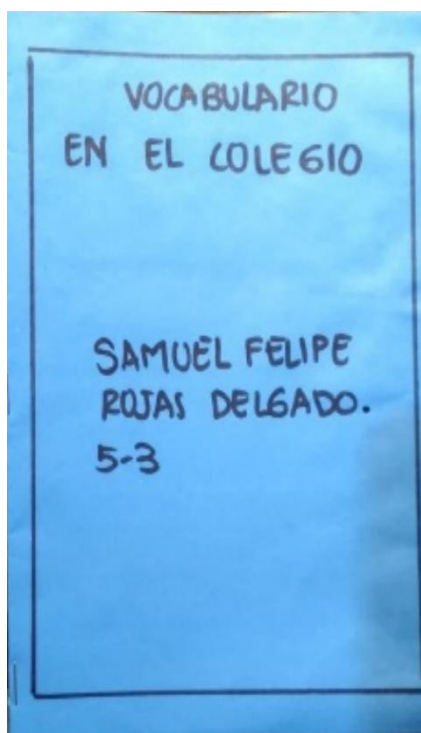 VOCABULARIO
EN EL COLEGIO
SAMUEL FELIPE
ROJAS DELGADO.
5-3